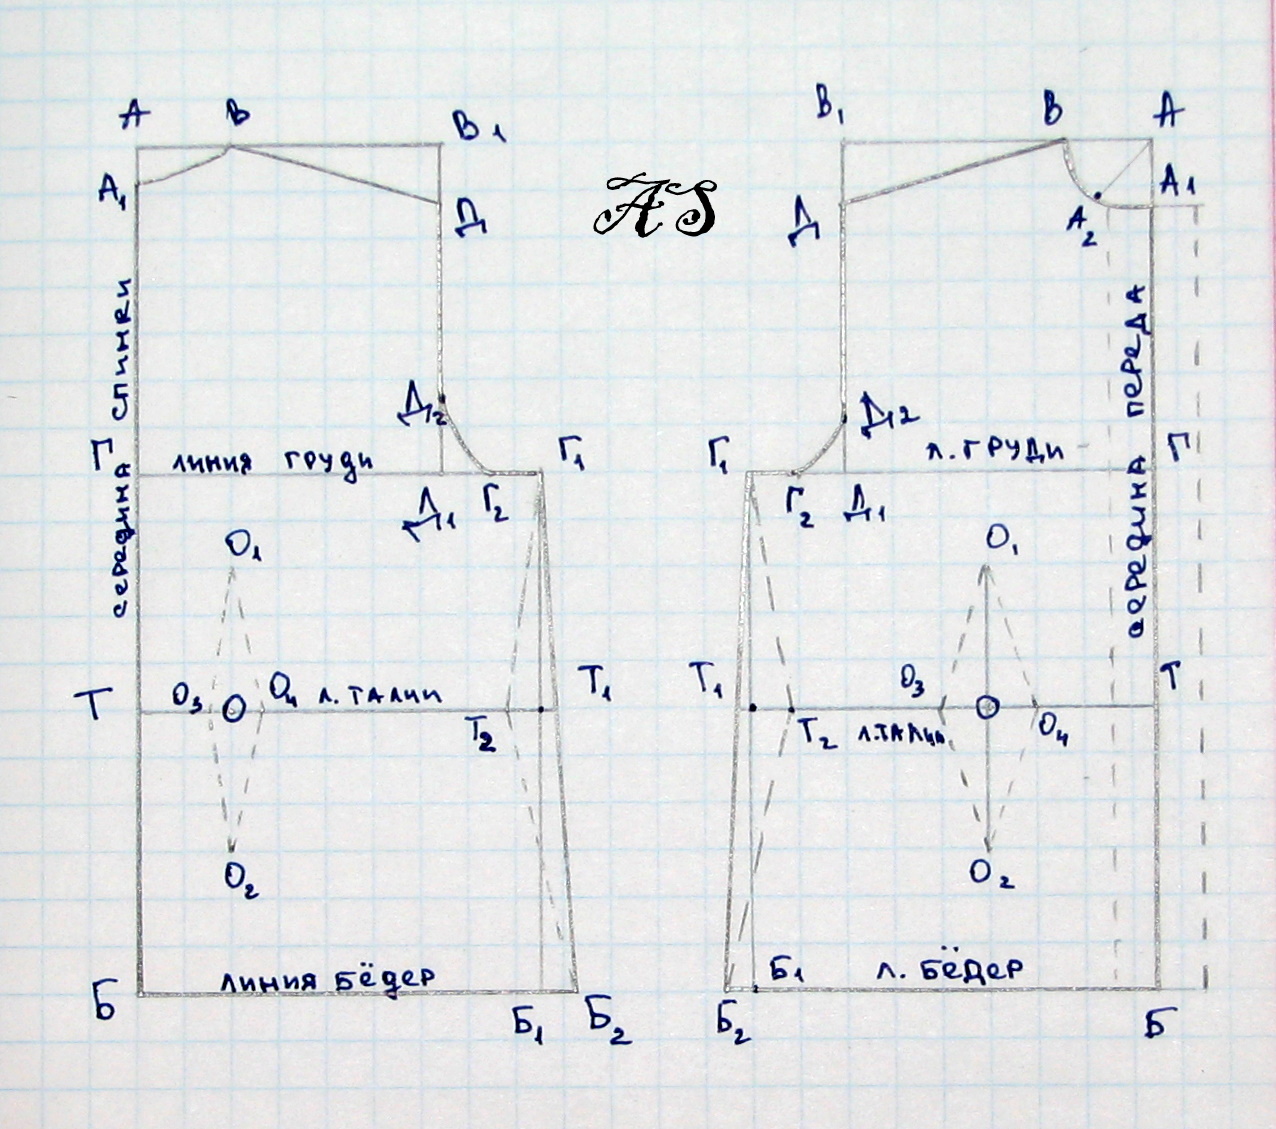 А В В1
А1 Д
середина спинки
Д2
Г линия груди Г1
Д1 Г2
О1
Т О3 О О4 л. талии Т1
Т2
О2
Б линия бёдер
Б1 Б2
AS
В1 В А
Д А2 А1
середина переда
Д2
Г1 л. груди Г
Г2 Д1
О1
Т1 О3 О Т
Т2 л. талии О4
О2
Б1 л. бёдер
Б2 Б